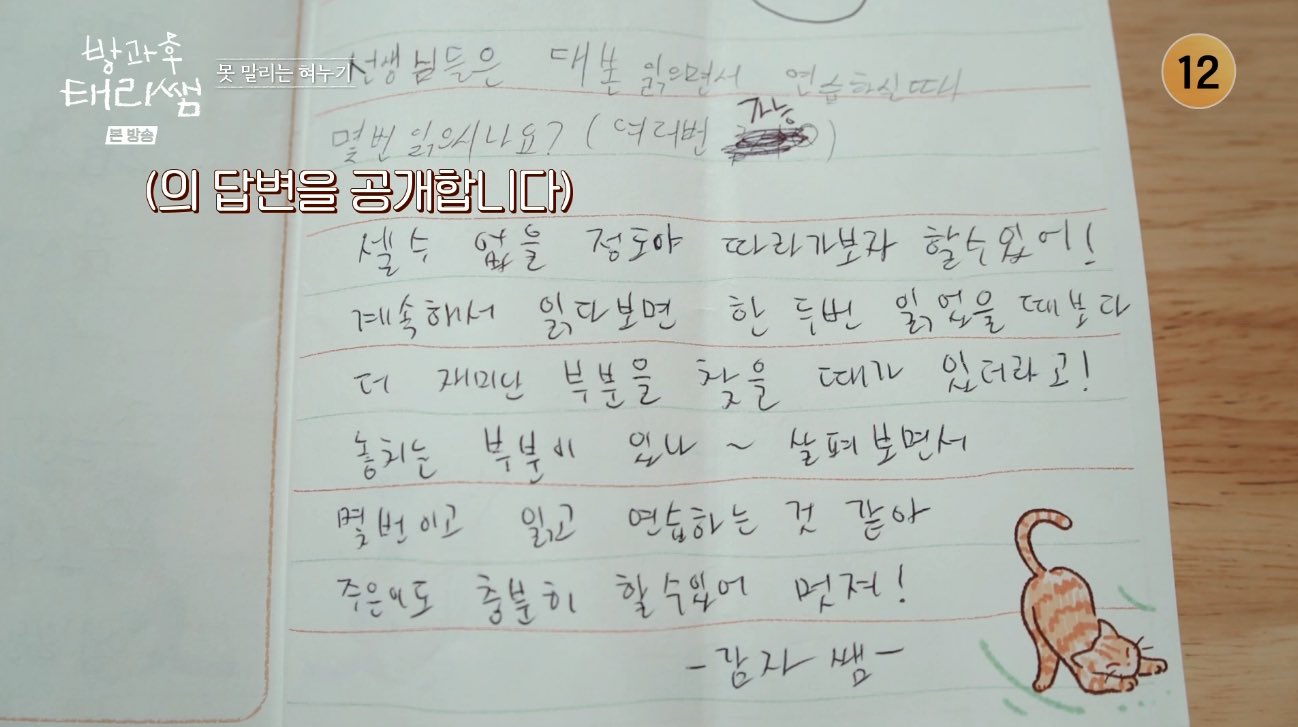 방과후
태리쌤
본 방송
못 말리는 혀누기
12
선생님들은 대본 읽으면서 연습하실때
몇번 읽으시나요? (여러번 가능)
(의 답변을 공개합니다)
셀수 없을 정도야 따라가보자 할수있어!
계속해서 읽다보면 한 두번 읽었을 때보다
더 재미난 부분을 찾을 때가 있더라고!
놓치는 부분이 있나 ~ 살펴보면서
몇번이고 읽고 연습하는 것 같아
주은이도 충분히 할수있어 멋져!
-감자쌤-